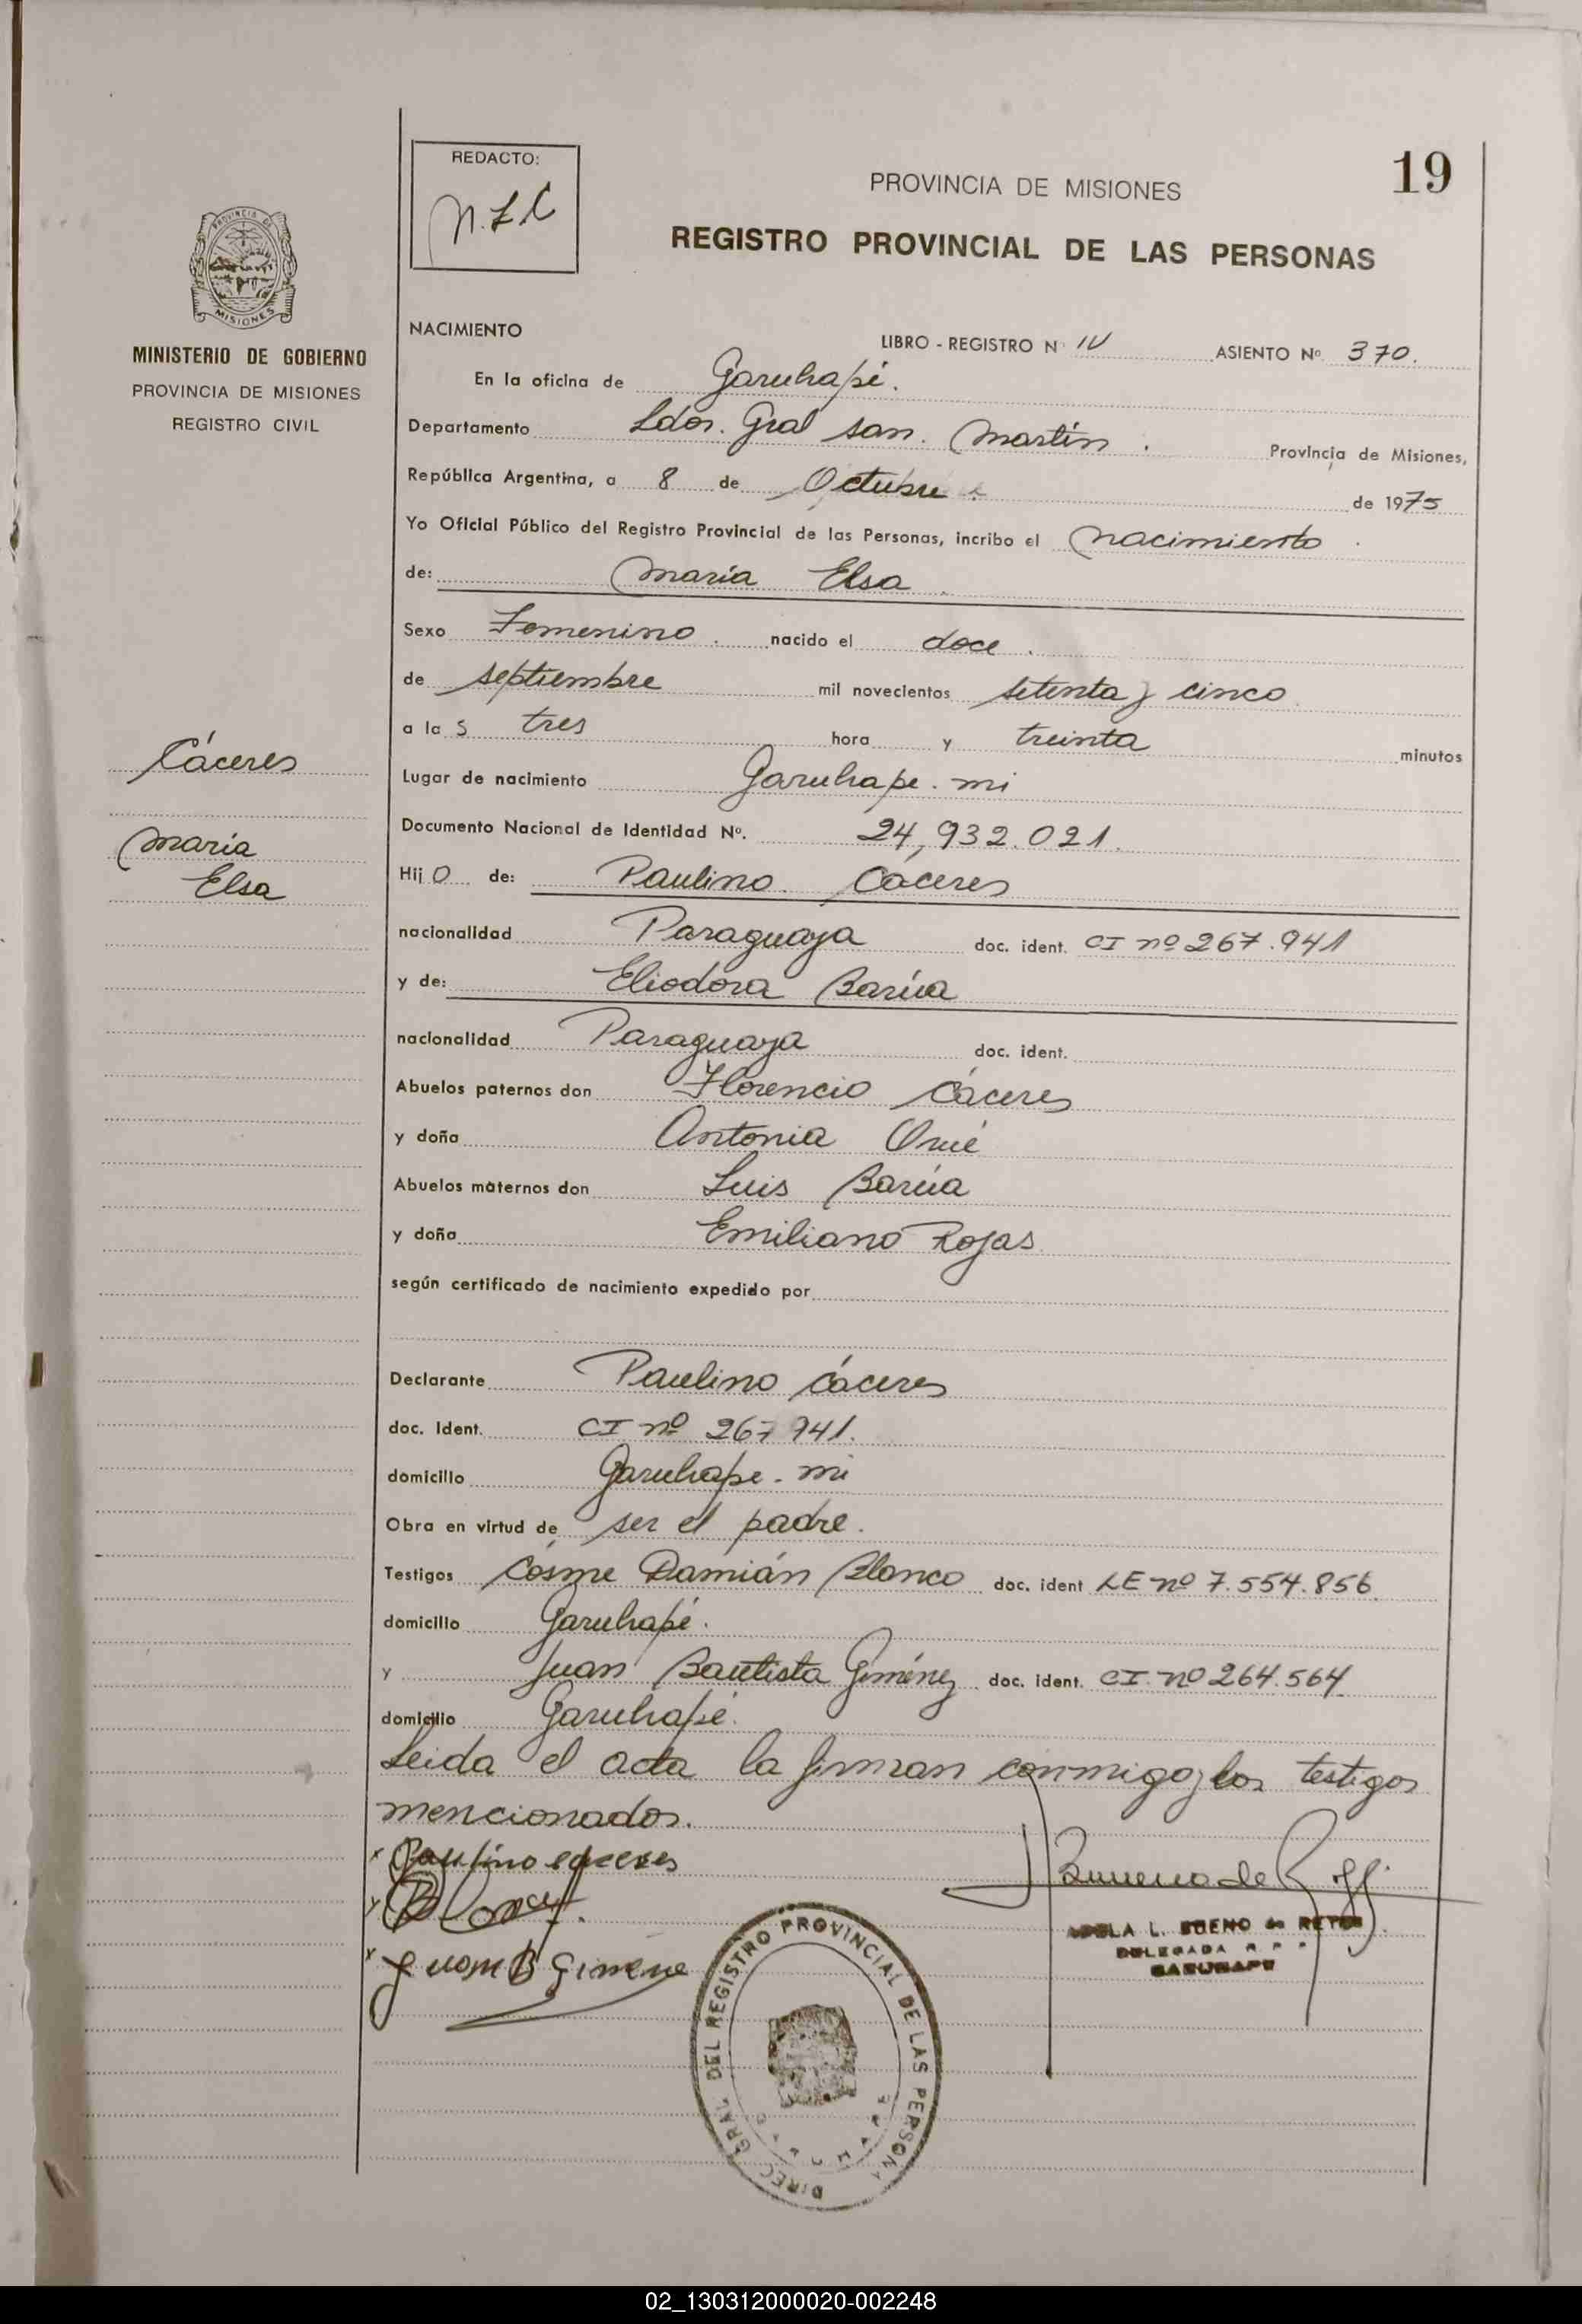 REDACTO:
PROVINCIA DE MISIONES
19
REGISTRO PROVINCIAL DE LAS PERSONAS
PROVINCIA DE
MISIONES
MINISTERIO DE GOBIERNO
PROVINCIA DE MISIONES
REGISTRO CIVIL
NACIMIENTO LIBRO - REGISTRO N IV ASIENTO Nº 370.
En la oficina de Garuhapé.
Departamento Ldor. Gral San. Martín. Provincia de Misiones,
República Argentina, a 8 de Octubre de 1975
Yo Oficial Público del Registro Provincial de las Personas, incribo el nacimiento
de: María Elsa
Sexo Femenino. nacido el doce.
de septiembre mil novecientos setenta y cinco
a la s tres hora y treinta minutos
Cáceres
María
Elsa
Lugar de nacimiento Garuhape. mi
Documento Nacional de Identidad Nº. 24,932.021.
Hij o de: Paulino Cáceres
nacionalidad Paraguaya doc. ident. CI nº 267.941
y de: Eliodora Barúa
nacionalidad Paraguaya doc. ident.
Abuelos paternos don Florencio Cáceres
y doña Antonia Orué
Abuelos maternos don Luis Barúa
y doña Emiliano Rojas
según certificado de nacimiento expedido por
Declarante Paulino Cáceres
doc. Ident. CI nº 267 941.
domicilio Garuhape. mi
Obra en virtud de ser el padre.
Testigos Cósme Damián Blanco doc. ident LE nº 7.554.856
domicilio Garuhapé.
y Juan Bautista Giménez doc. ident. CI. nº 264.564
domicilio Garuhapé.
Leida el acta la firman conmigo y los testigos
mencionados.
Paulino caceres
Juan B Gimene
L. BUENO de REYES
DELEGADA R P P
GARUHAPE
DIREC. GRAL. DEL REGISTRO PROVINCIAL DE LAS PERSONA
02_130312000020-002248